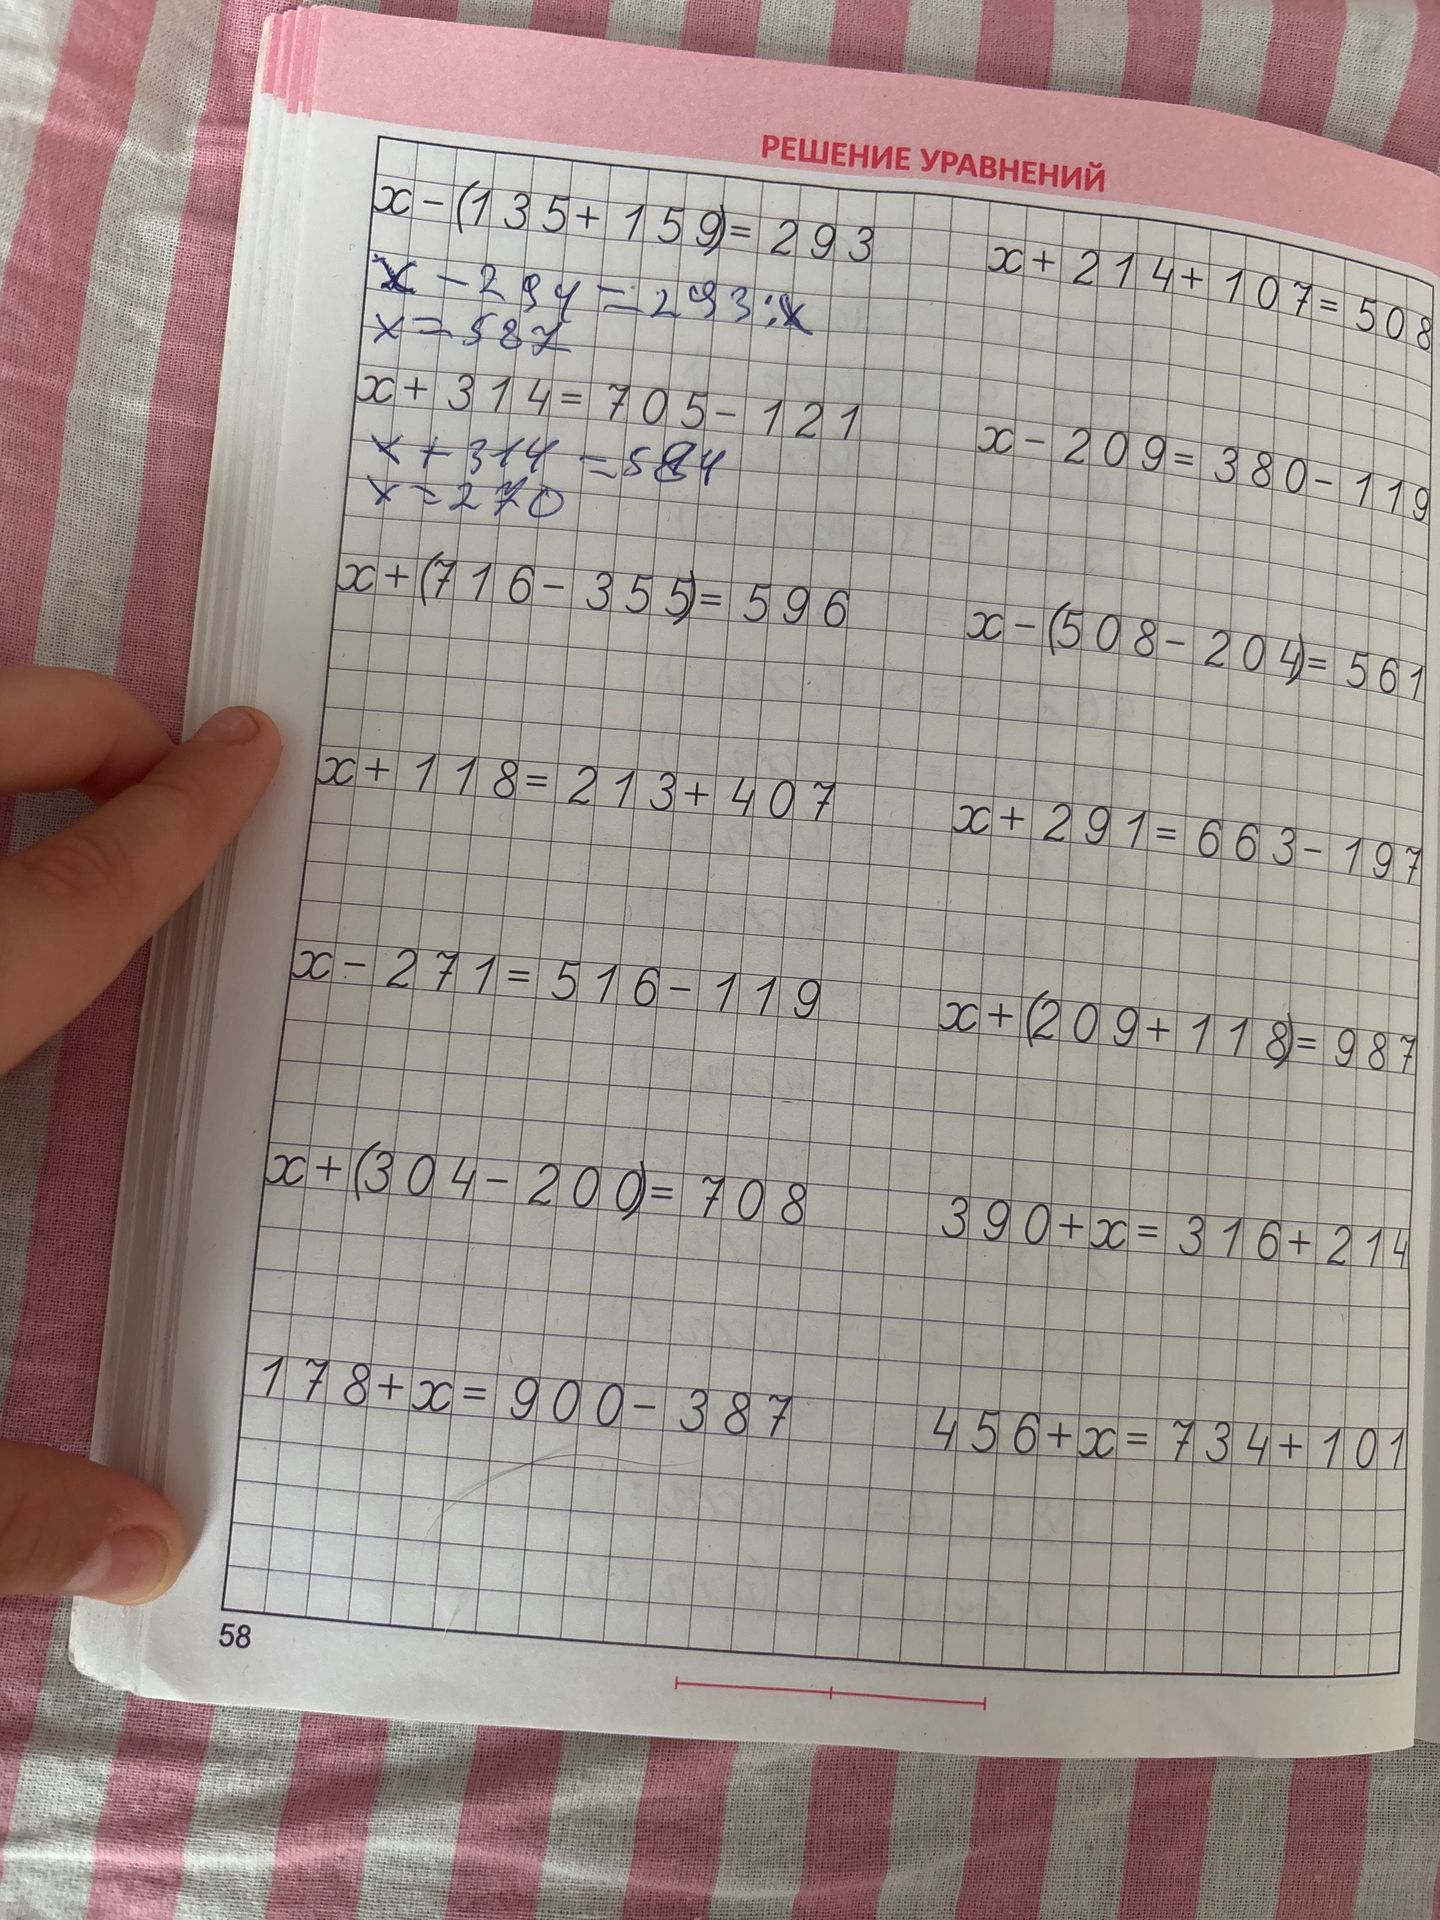 РЕШЕНИЕ УРАВНЕНИЙ
x-(135+159)=293
x-294=293:x
x=587
x+314=705-121
x+314=584
x=270
x+(716-355)=596
x+118=213+407
x-271=516-119
x+(304-200)=708
178+x=900-387
x+214+107=508
x-209=380-119
x-(508-204)=561
x+291=663-197
x+(209+118)=987
390+x=316+214
456+x=734+101
58